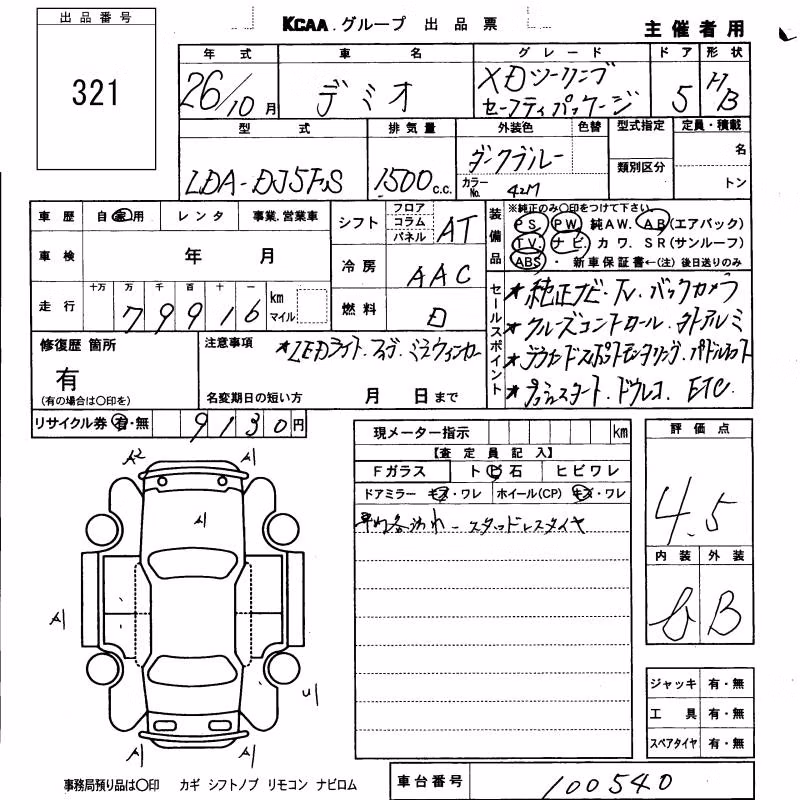 出品番号
321
KCAA.グループ 出品票
主催者用
年式 車名 グレード ドア 形状
26/10月 デミオ XDツーリング セーフティパッケージ 5 HB
型式 排気量 外装色 色替 型式指定 定員・積載
LDA-DJ5FS 1500c.c. ダークブルー
カラーNo. 42M
類別区分
名
トン
車歴 自家用 レンタ 事業.営業車
車検 年 月
走行 十万 万 千 百 十 一 km マイル
79916
シフト フロア コラム パネル AT
冷房 AAC
燃料 D
装備品
※純正のみ〇印をつけて下さい。
PS. PW. 純AW. AB(エアバック)
TV. ナビ. カワ. SR(サンルーフ)
ABS ・ 新車保証書←(注) 後日送りのみ
セールスポイント
★純正ナビ・TV.バックカメラ
★クルーズコントロール.
★プッシュスタート.ドラレコ ETC
修復歴 箇所
有
(有の場合は〇印を)
注意事項
★LEDライト.
名変期日の短い方 月 日まで
リサイクル券 有・無 9130円
現メーター指示 km
【査定員記入】
Fガラス トビ石 ヒビワレ
ドアミラー キズ・ワレ ホイール(CP) キズ・ワレ
スタッドレスタイヤ
評価点
4.5
内装 外装
B
ジャッキ 有・無
工具 有・無
スペアタイヤ 有・無
事務局預り品は〇印 カギ シフトノブ リモコン ナビロム
車台番号 100540